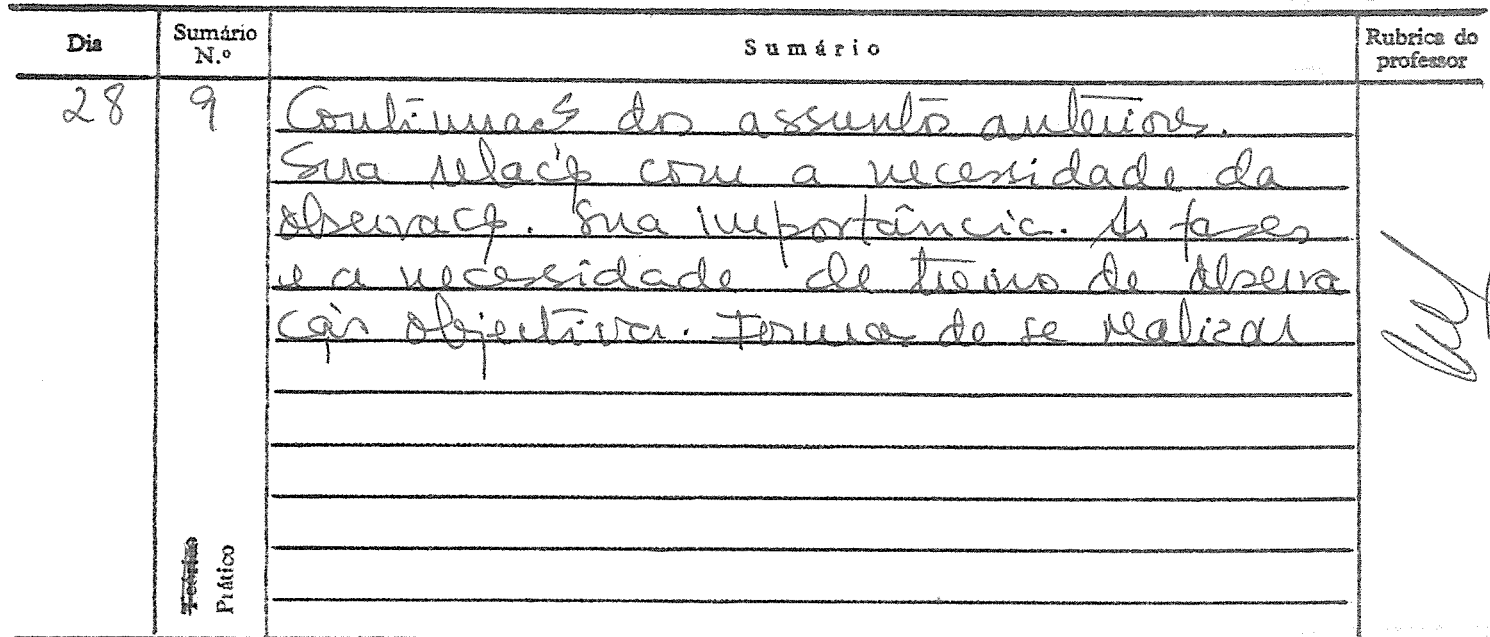 Dia Sumário N.º Sumário Rubrica do professor
28 9 Continuação dos assuntos anteriores.
Sua relação com a necessidade da
observação. Sua importância. As fases
e a necessidade de treino de observa
ção objectiva. Formas de se realizar
Teórico
Prático